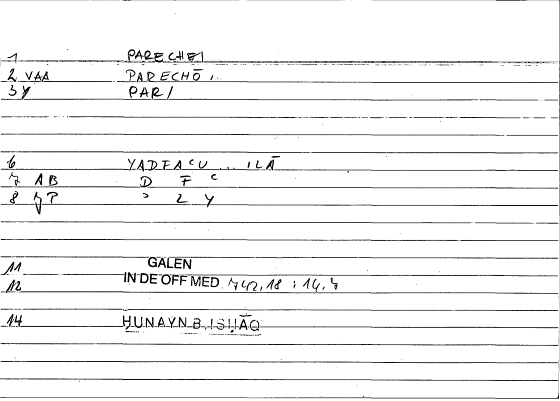 1 PARECHEI
2 VAA PARECHŌ
3 Y PAR/
6 YADFAcU ... ILĀ
7 AB D F c
8 P ɔ 2 Y
11 GALEN
12 IN DE OFF MED 742,18 : 14,7
14 ḤUNAYN B. ISḤĀQ